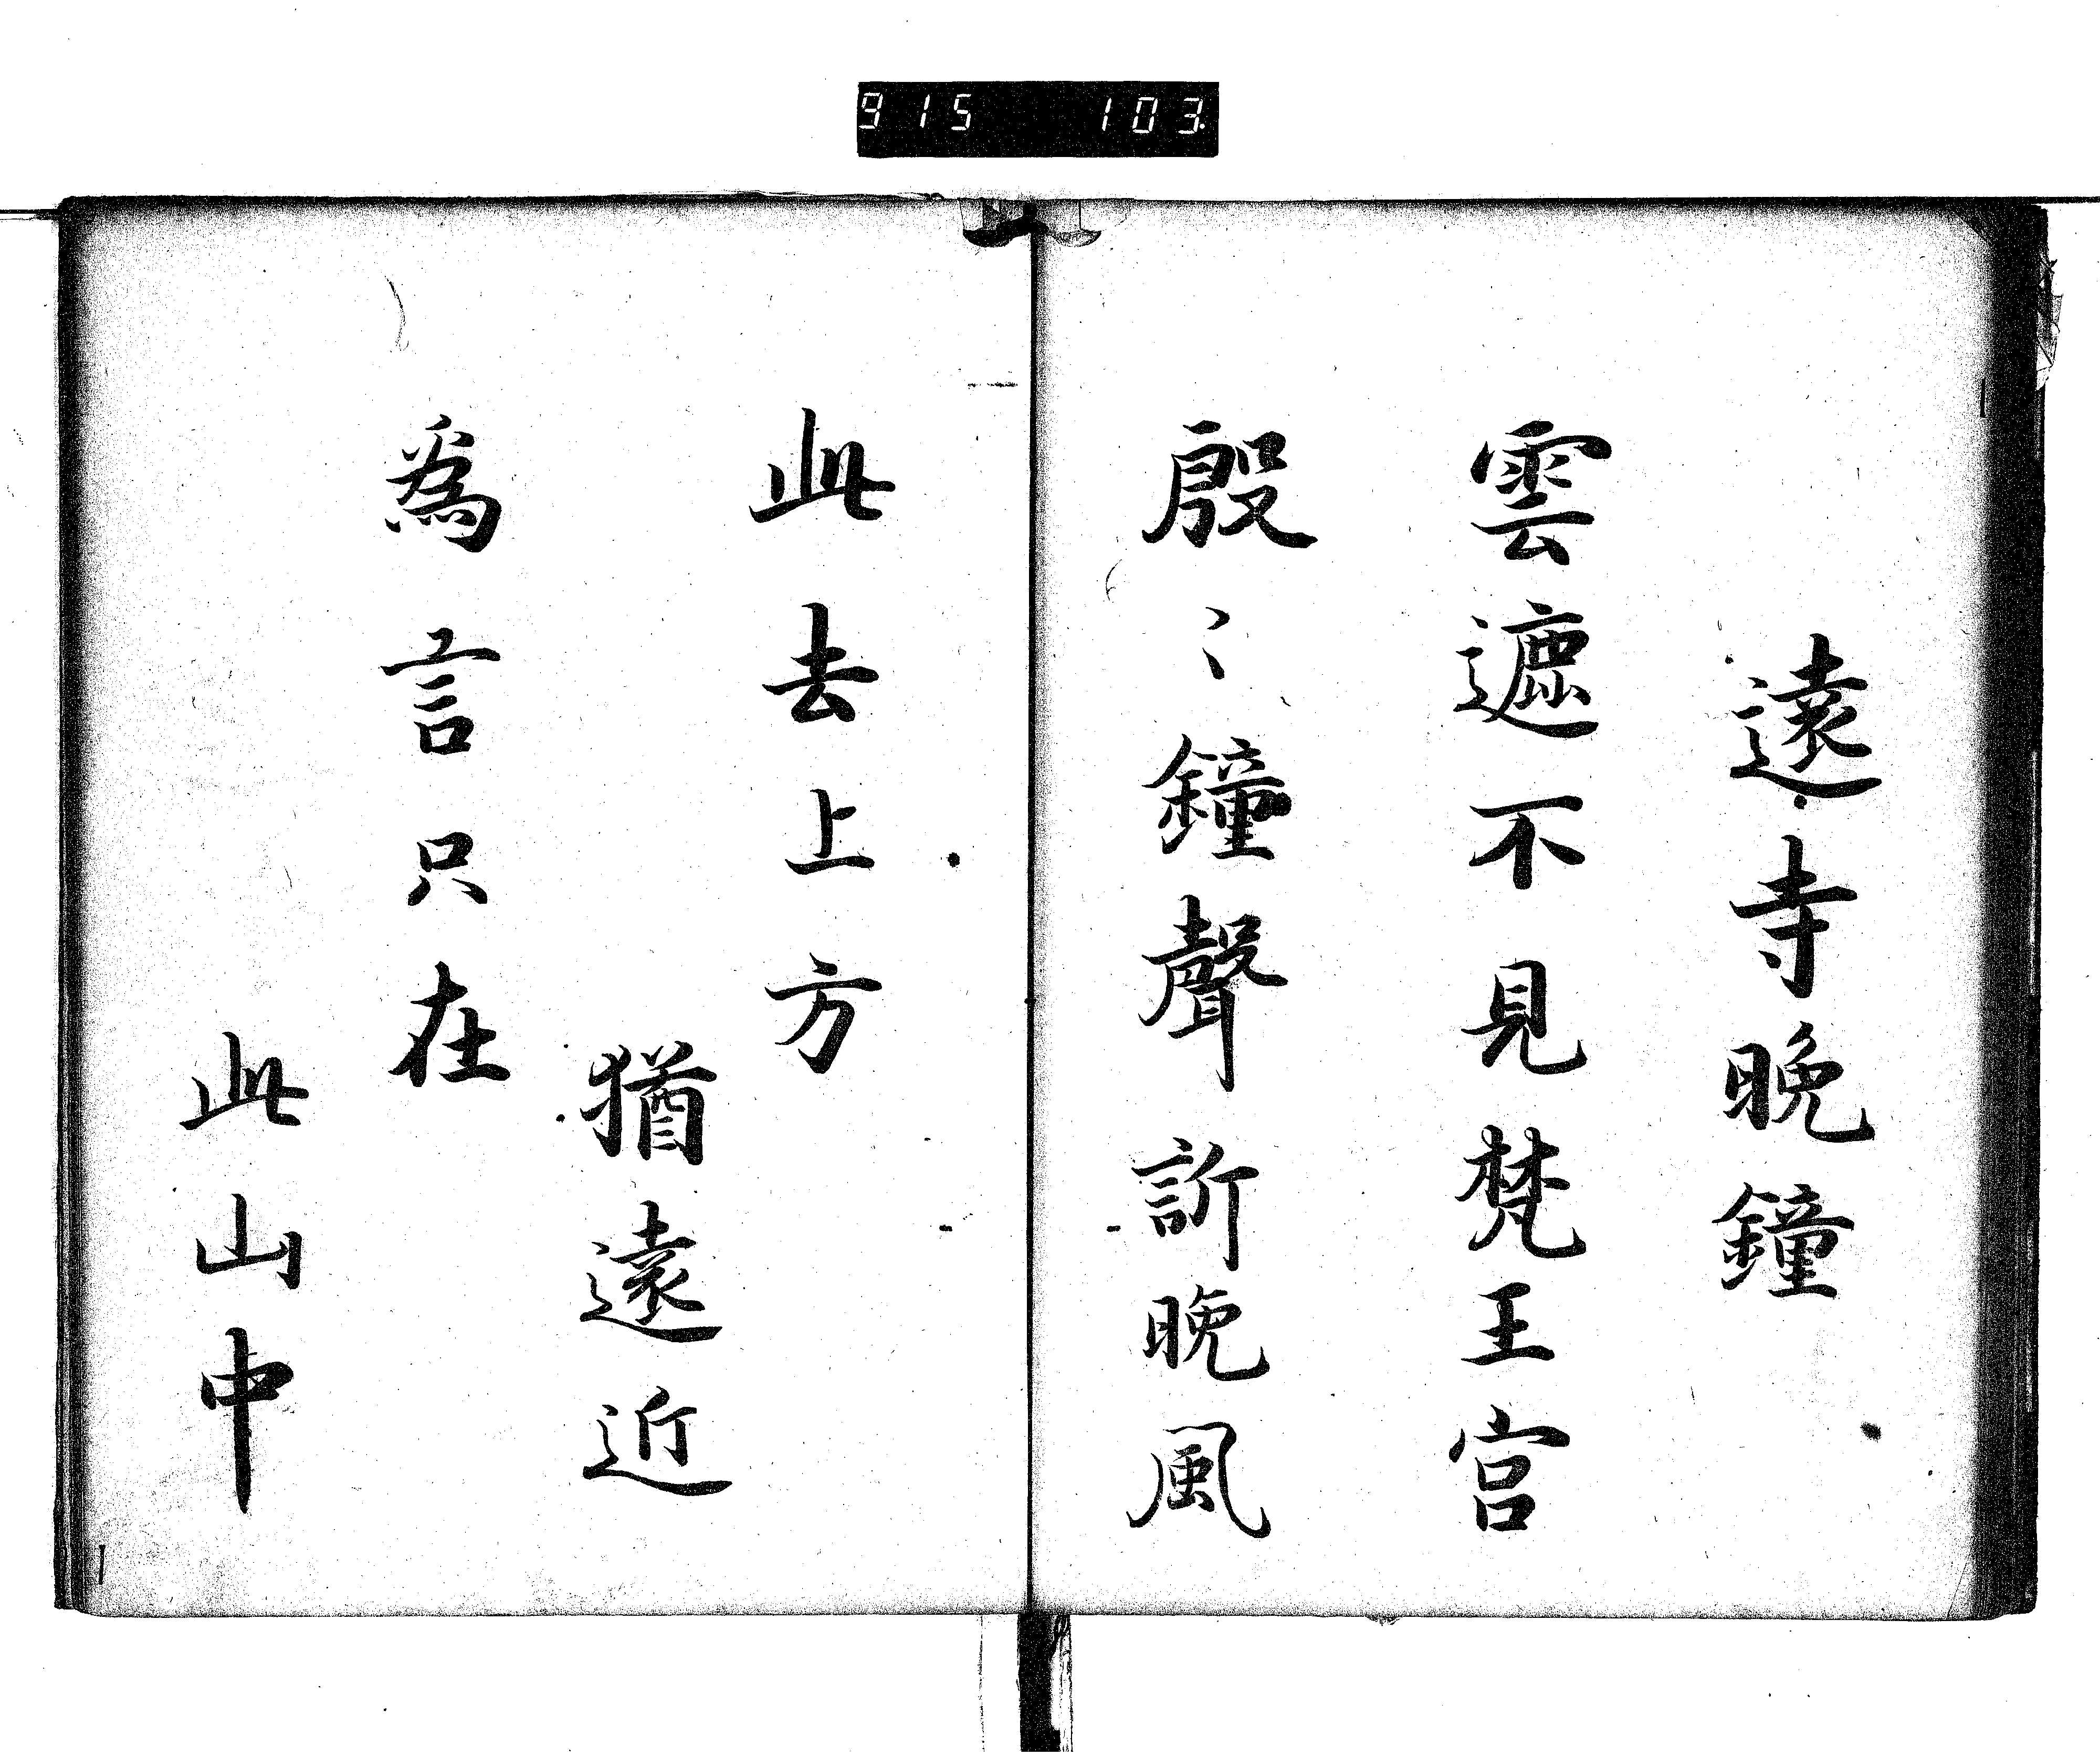 915 103.
遠寺晩鐘
雲遮不見梵王宮
殷〻鐘聲訴晩風
此去上方
猶遠近
爲言只在
此山中